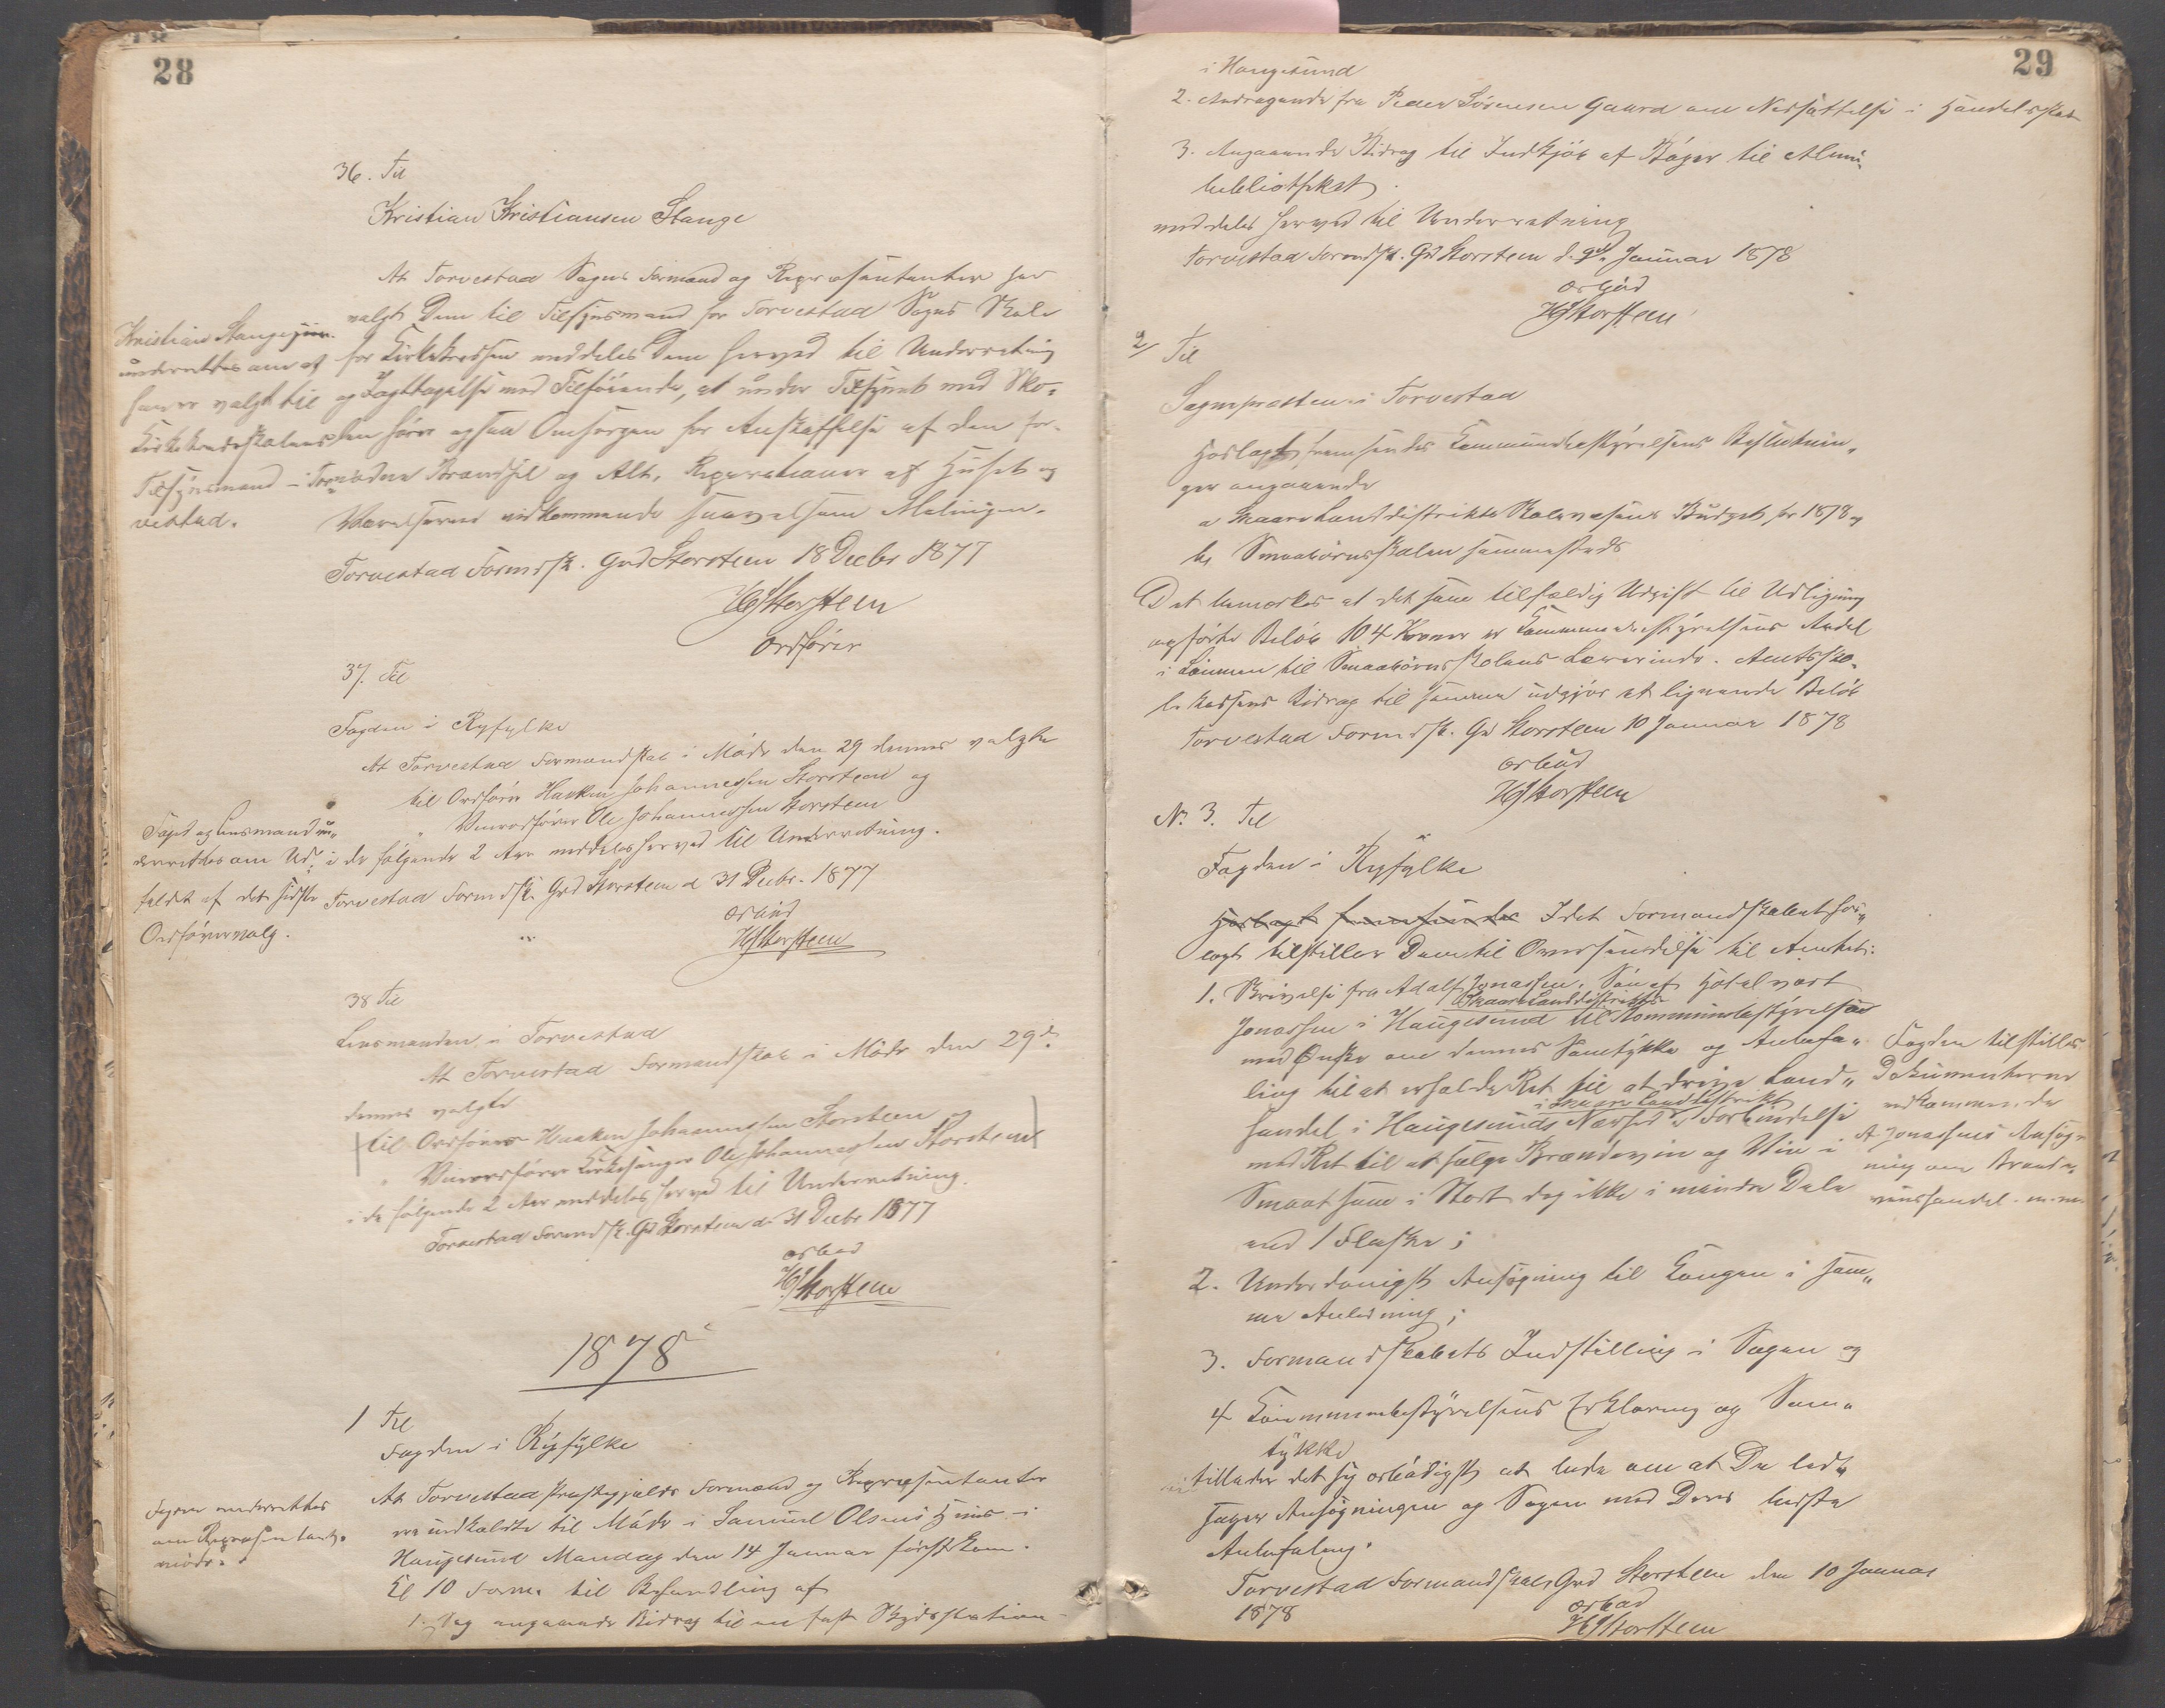 28
36. Til
Kristian Kristiansen Stange
At Torvestad Sogns Formænd og Repræsentanter har
valgt Dem til Tilsynsmand for Torvestad Sogns Skole
for Kirkekredsen meddeles Dem herved til Underretning
og Iagttagelse med Tilføiende, at under Tilsynet med Sko-
len hører ogsaa Omsorgen for Anskaffelse af den for-
nødne Brændsel og Alt, Reparationer af Huset og
Værelserne vedkommende saavelsom Malingen.
Torvestad Formdsk. Grd Storsteen 18 Decbr 1877
HJStorsteen
Ordfører
Kristian Stange
underrettes om at
han er valgt til
Kirkekredsskolens
Tilsynsmand i Tor-
vestad.
37. Til
Fogden i Ryfylke
At Torvestad Formandskab i Møde den 29 dennes valgte
til Ordfører Haaken Johannessen Storsteen og
" Viceordfører Ole Johannessen Storsteen
i de følgende 2 Aar meddeles herved til Underretning.
Torvestad Formdsk. Grd Storsteen d 31 Decbr. 1877
ærbød
HJStorsteen
Fogd og Lensmand un-
derrettes om Ud-
faldet af det sidste
Ordførervalg.
38 Til
Lensmanden i Torvestad
At Torvestad Formandskab i Møde den 29de
dennes valgte
til Ordfører Haaken Johannessen Storsteen og
" Viceordfører Kirkesanger Ole Johannessen Storsteen
i de følgende 2 Aar meddeles herved til Underretning.
Torvestad Formdsk. Grd Storsteen de 31 Decbr 1877
ærbød
HJStorsteen
1878
1 Til
Fogden i Ryfylke
At Torvestad Præstegjælds Formænd og Repræsentanter
ere indkaldte til Møde i Samuel Olsens Huus i
Haugesund Mandag den 14 Januar førstkom.
Kl 10 Form. til Behandling af
1. Sag angaaende Bidrag til en fast Skydsstation
Fogden underrettes
om Repræsentant-
møde.
29
i Haugesund
2. Andragende fra Peder Sørensen Gaard om Nedsættelse i Handelsskat
3. Angaaende Bidrag til Indkjøb af Bøger til Almu-
bibliotheket.
meddeles herved til Underretning
Torvestad Formdsk. Grd Storsteen d. 9de Januar 1878
ærbød
HJStorsteen
2/ Til
Sognepræsten i Torvestad
Hoslagt fremsendes Kommunebestyrelsens Beslutnin-
ger angaaende
a Skaare Landdistrikts Skolevæsens Budget for 1878 og
b Smaabørnsskolen sammesteds
Det bemærkes at det som tilfældig Udgift til Udligning
opførte Beløb 104 Kroner er Kommunebestyrelsens Andel
i Lønnen til Smaabørnsskolens Lærerinde. Amtssko-
lekassens Bidrag til samme udgjør et lignende Beløb
Torvestad Formdsk. Grd Storsteen 10 Januar 1878
ærbød
HJStorsteen
No. 3. Til
Fogden i Ryfylke
Hoslagt fremsendes Idet Formandskabet hos-
lagt tilstiller Dem til Oversendelse til Amtet:
1. Skrivelse fra Adolf Jonassen, Søn af Hotelvært
Skaare Landdistrikts
Jonassen i Haugesund til Kommunebestyrelsen
med Ønske om dennes Samtykke og Anbefa-
ling til at erholde Ret til at drive Land-
i Skaare Landdistrikt
handel i Haugesunds Nærhed i Forbindelse
med Ret til at sælge Brændevin og Vin i
Smaat som i Stort dog ikke i mindre Dele
end 1 Flaske;
2. Underdanigst Ansøgning til Kongen i sam-
me Anledning;
3. Formandskabets Indstilling i Sagen og
4 Kommunebestyrelsens Erklæring og Sam-
tykke
tillader det sig ærbødigst at bede om at De led-
sager Ansøgningen og Sagen med Deres bedste
Anbefaling.
Torvestad Formandskab, Grd Storsteen den 10 Januar
1878
ærbød
HJStorsteen
Fogden tilstilles
Dokumenterne
vedkommende
A Jonassens Ansøg-
ning om Brænde-
vinshandel m.m.